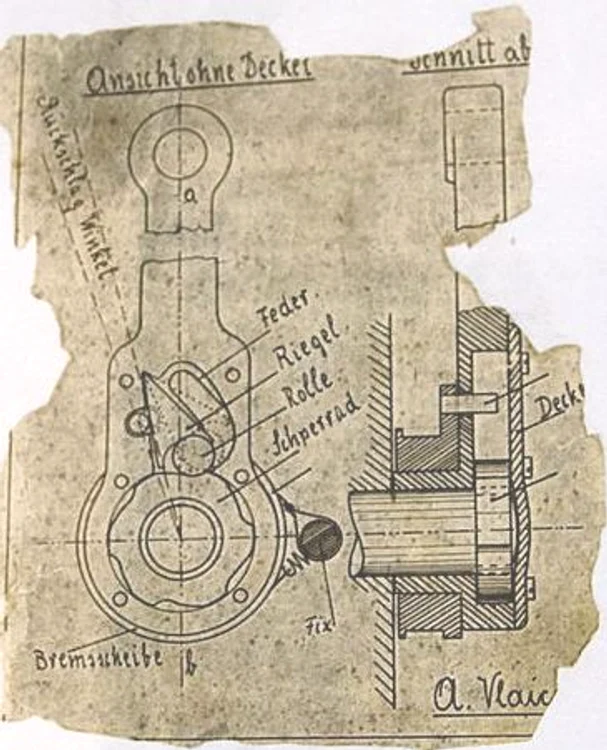 Ansicht ohne Deckel
Schnitt ab
Rückschlag Winkel
a
Feder.
Riegel.
Rolle
Schperrad
Decke
Fix
Bremsscheibe
b
A. Vlaic